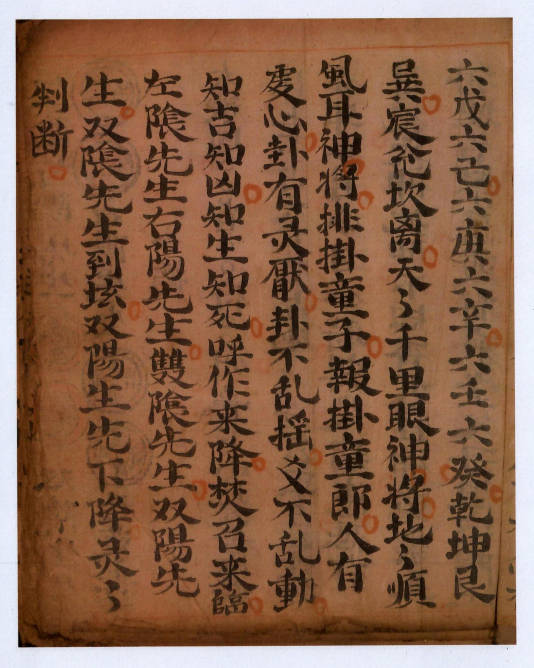 六戊六己六庚六辛六壬六癸乾坤艮
巽宸兊坎离天々千里眼神将地々順
風耳神将排掛童子報掛童郎人有
虔心卦有灵厭卦不乱揺爻不乱動
知吉知凶知生知死呼作来降焚召来臨
左陰先生右陽先生雙陰先生双陽先
生双陰先生到坛双陽生先下降灵々
判断